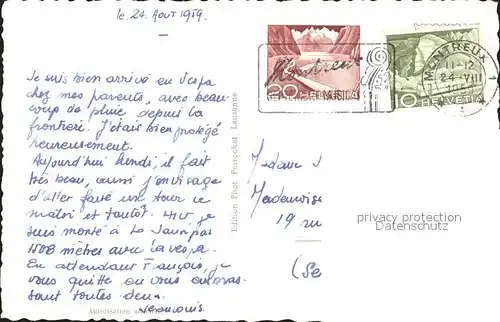 le 24. Aout 1959.
Je suis bien arrivé en Vespa
chez mes parents, avec beau-
coup de pluie depuis la
frontière. J'étais bien protégé
heureusement.
Aujourd'hui lundi, il fait
très beau, aussi j'envisage
d'aller faire une tour ce
matin et tantôt. Hier, je
suis monté à Le Jaun pas
1508 mètres avec la vespa.
En attendant François, je
vous quitte en vous embras-
sant toutes deux.
Autorisation
Edition Phot. Perrochet Lausanne
Montreux
20 HELVETIA
10 HELVETIA
MONTREUX
11-12
24-VIII
Madame
19 rue
(Se
privacy protection
Datenschutz